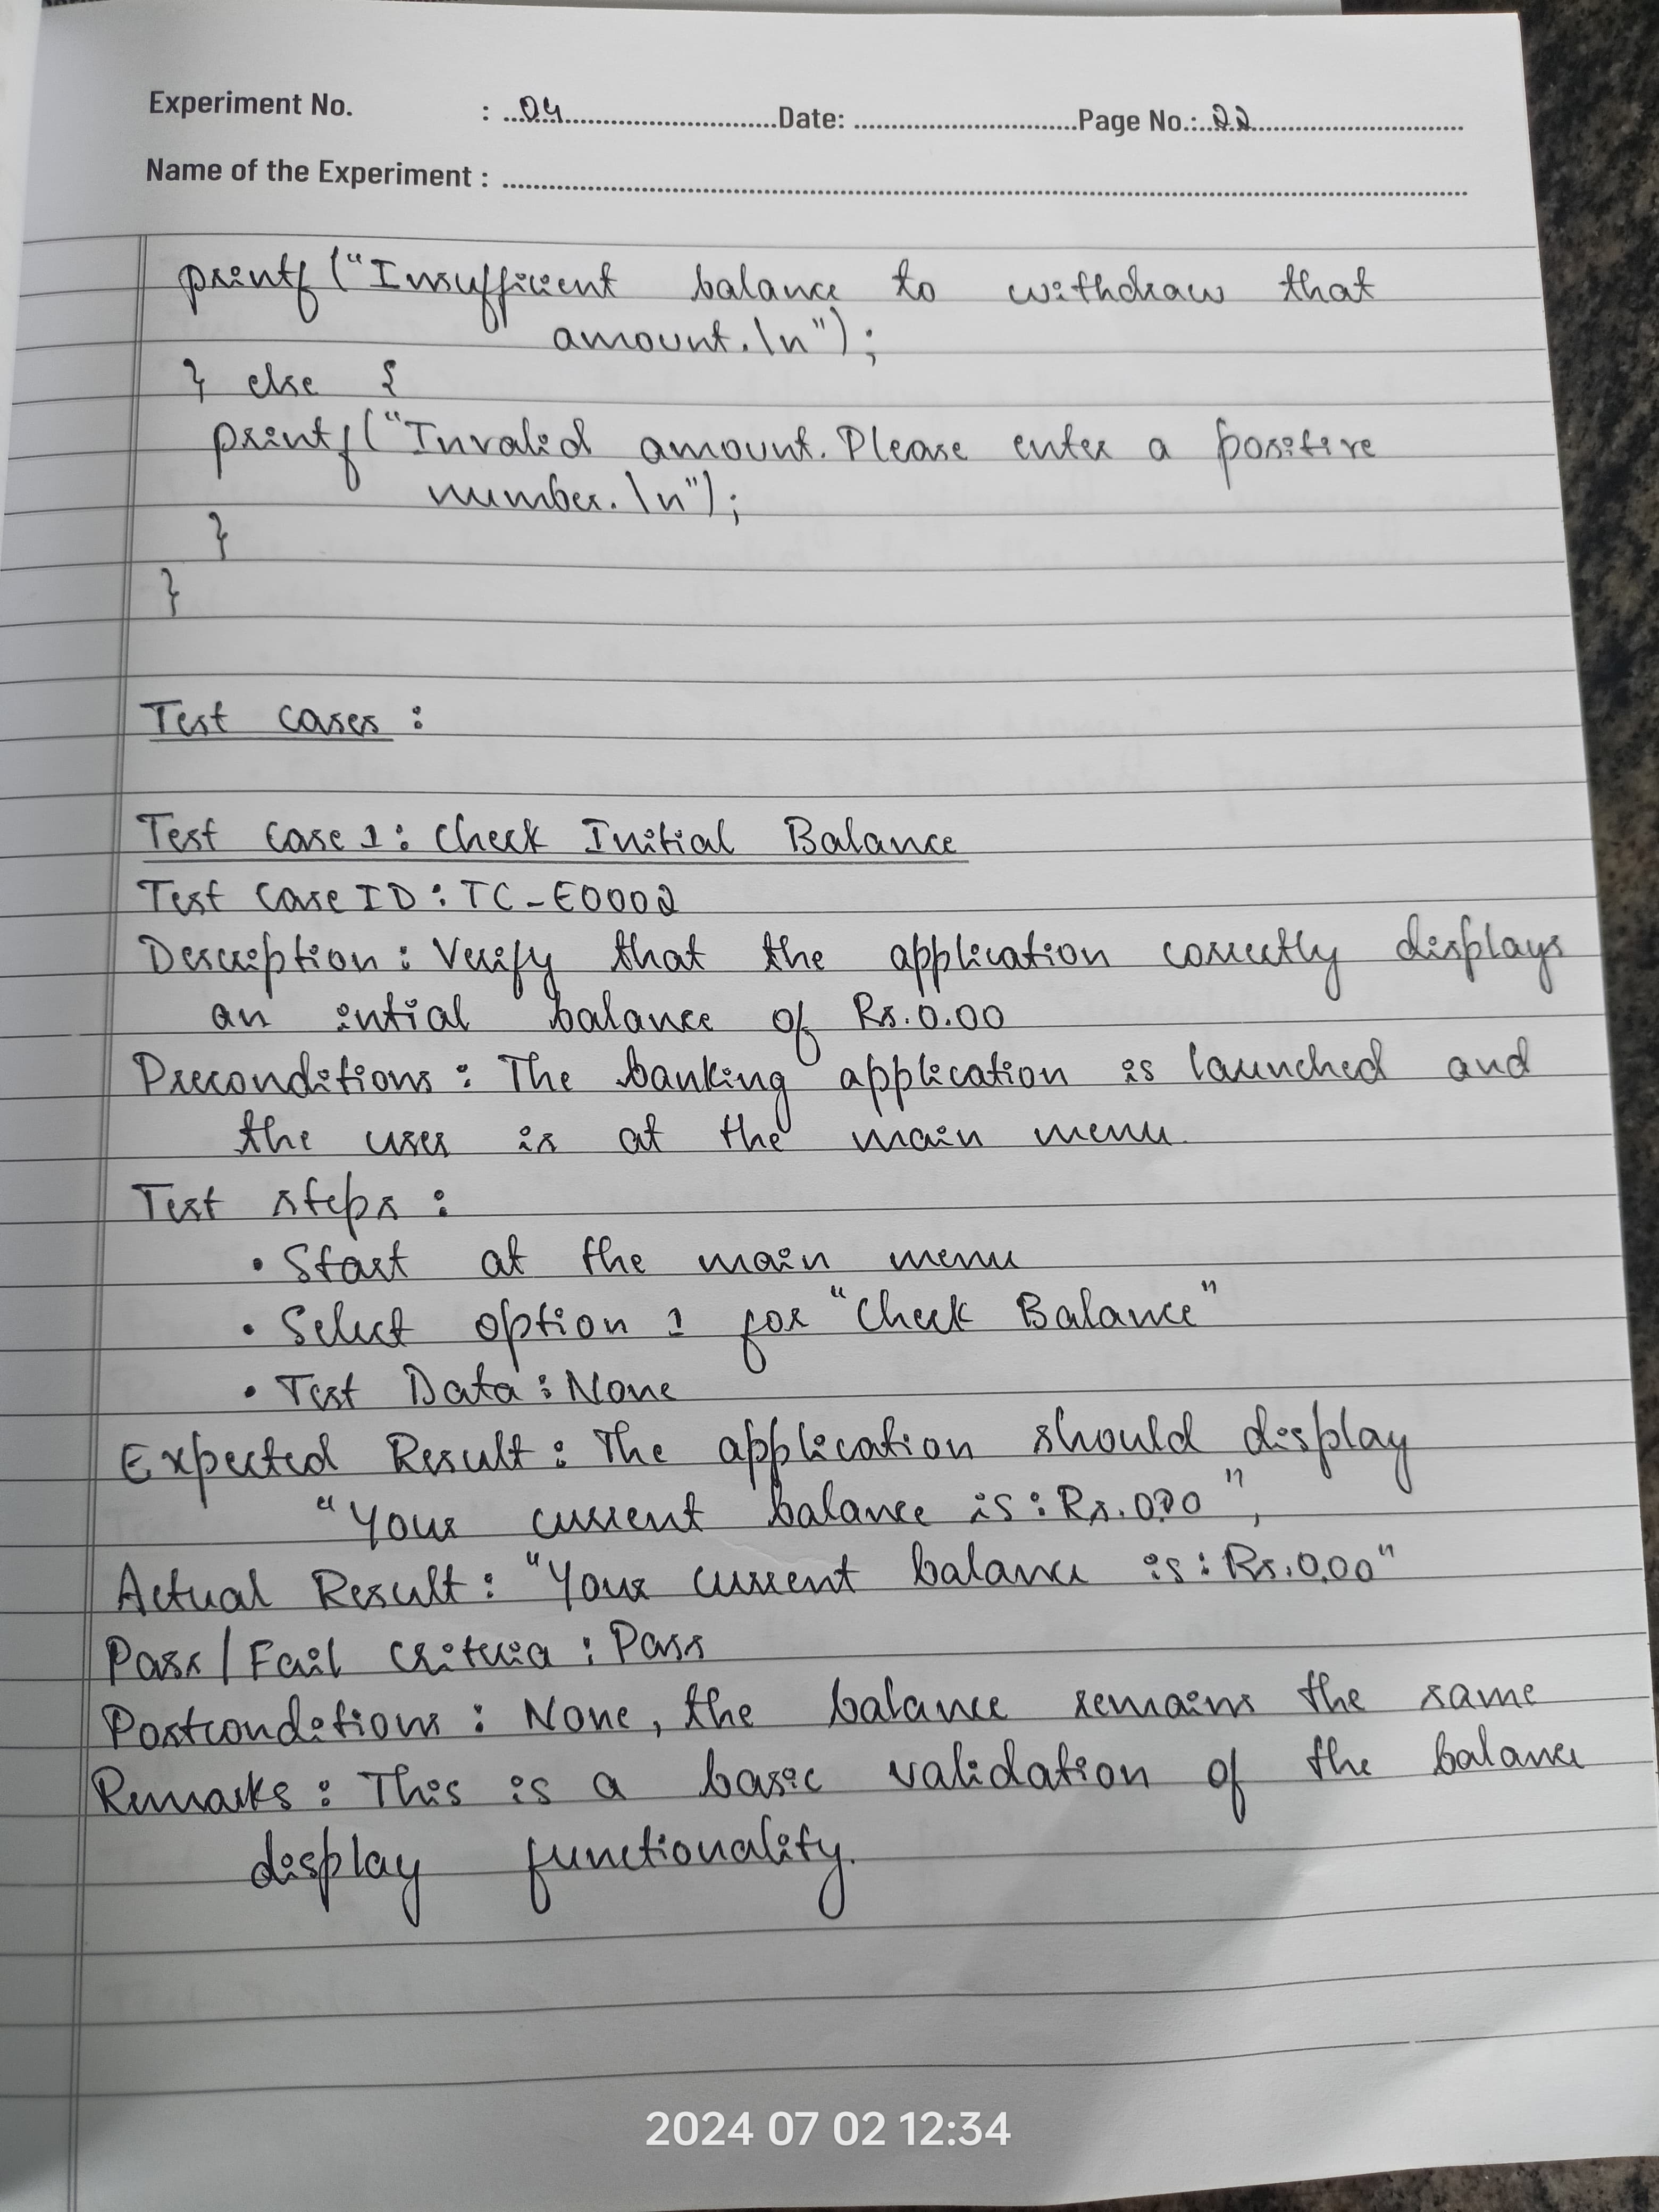 Experiment No. : 04 Date: Page No.: 22
Name of the Experiment :
printf ("Insufficient balance to withdraw that
amount.\n");
} else {
printf("Invalid amount. Please enter a positive
number.\n");
}
}
Test cases :
Test Case 1: Check Initial Balance
Test Case ID: TC-E0002
Description: Verify that the application correctly displays
an intial balance of Rs.0.00
Preconditions: The banking application is launched and
the user is at the main menu.
Test steps:
• Start at the main menu
• Select option 1 for "Check Balance"
• Test Data: None
Expected Result: The application should display
"Your current balance is: Rs.0.00",
Actual Result: "Your current balance is: Rs.0.00"
Pass/Fail Criteria: Pass
Postconditions: None, the balance remains the same
Remarks: This is a basic validation of the balance
display functionality.
2024 07 02 12:34